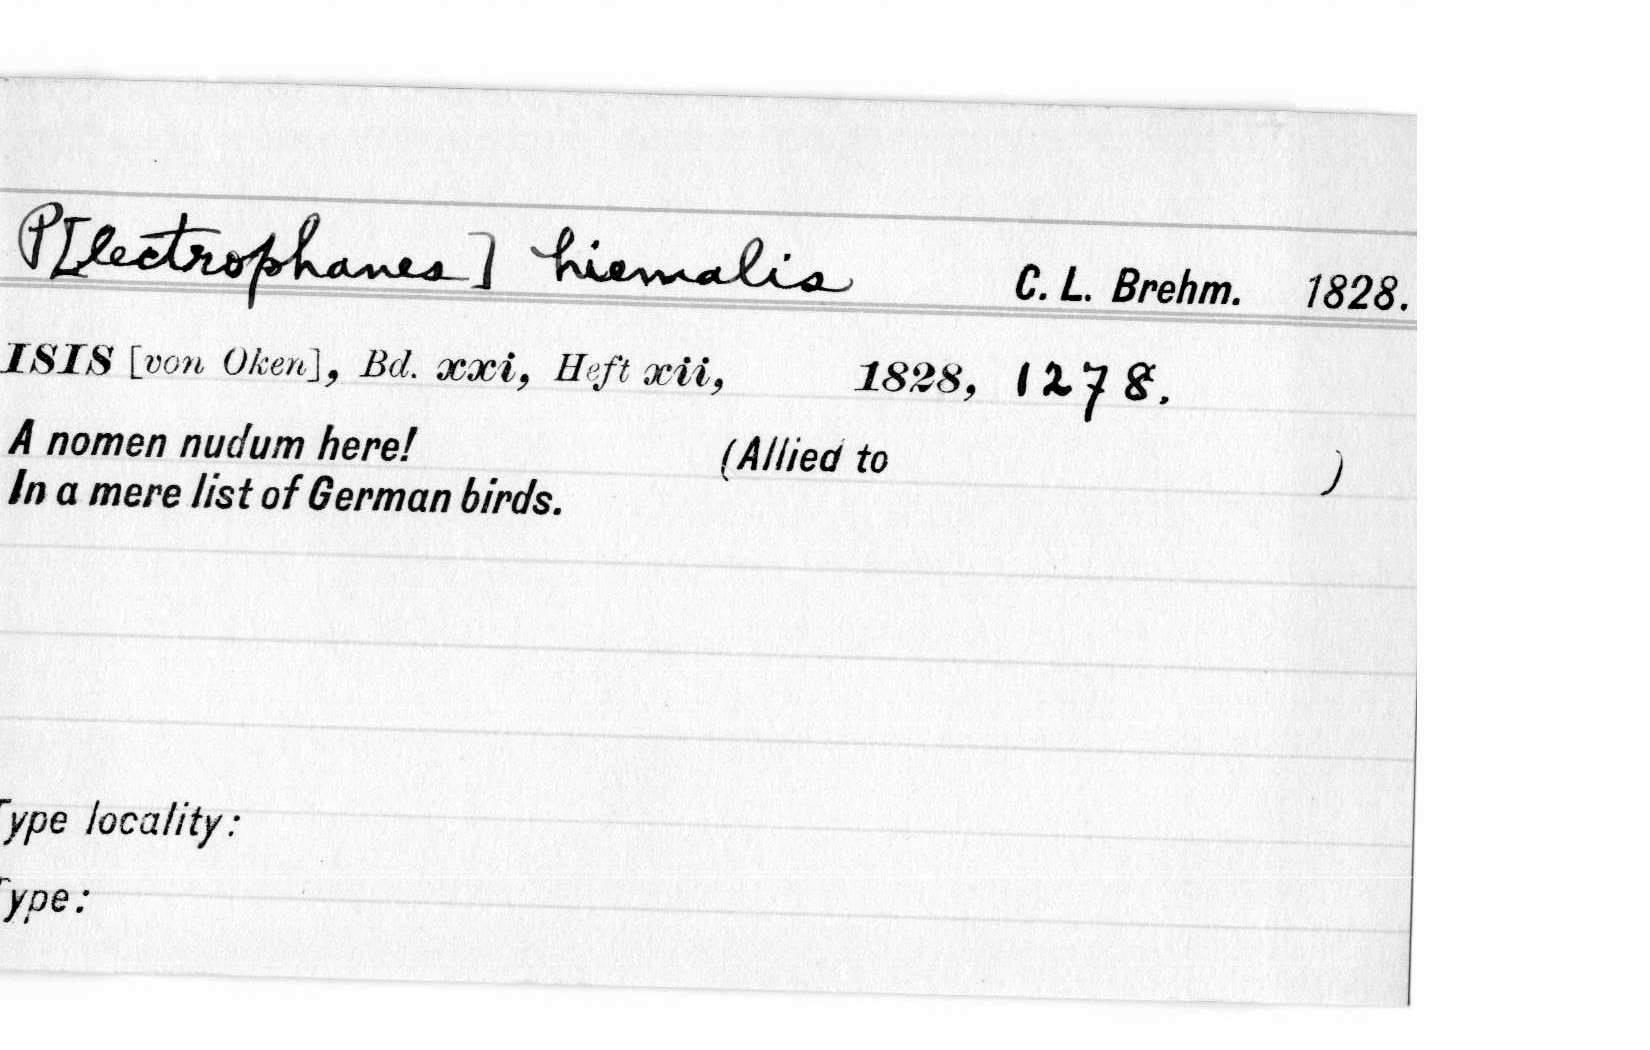 P[lectrophanes] hiemalis C. L. Brehm. 1828.
ISIS [von Oken], Bd. xxi, Heft xii, 1828, 1278.
A nomen nudum here! (Allied to )
In a mere list of German birds.
Type locality:
Type: